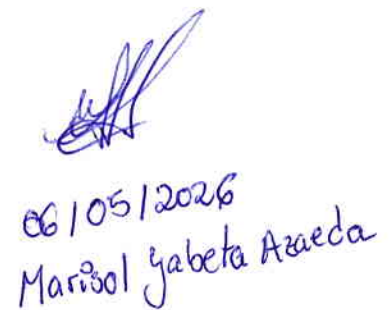 06/05/2026
Marisol Yabeta Azaeda